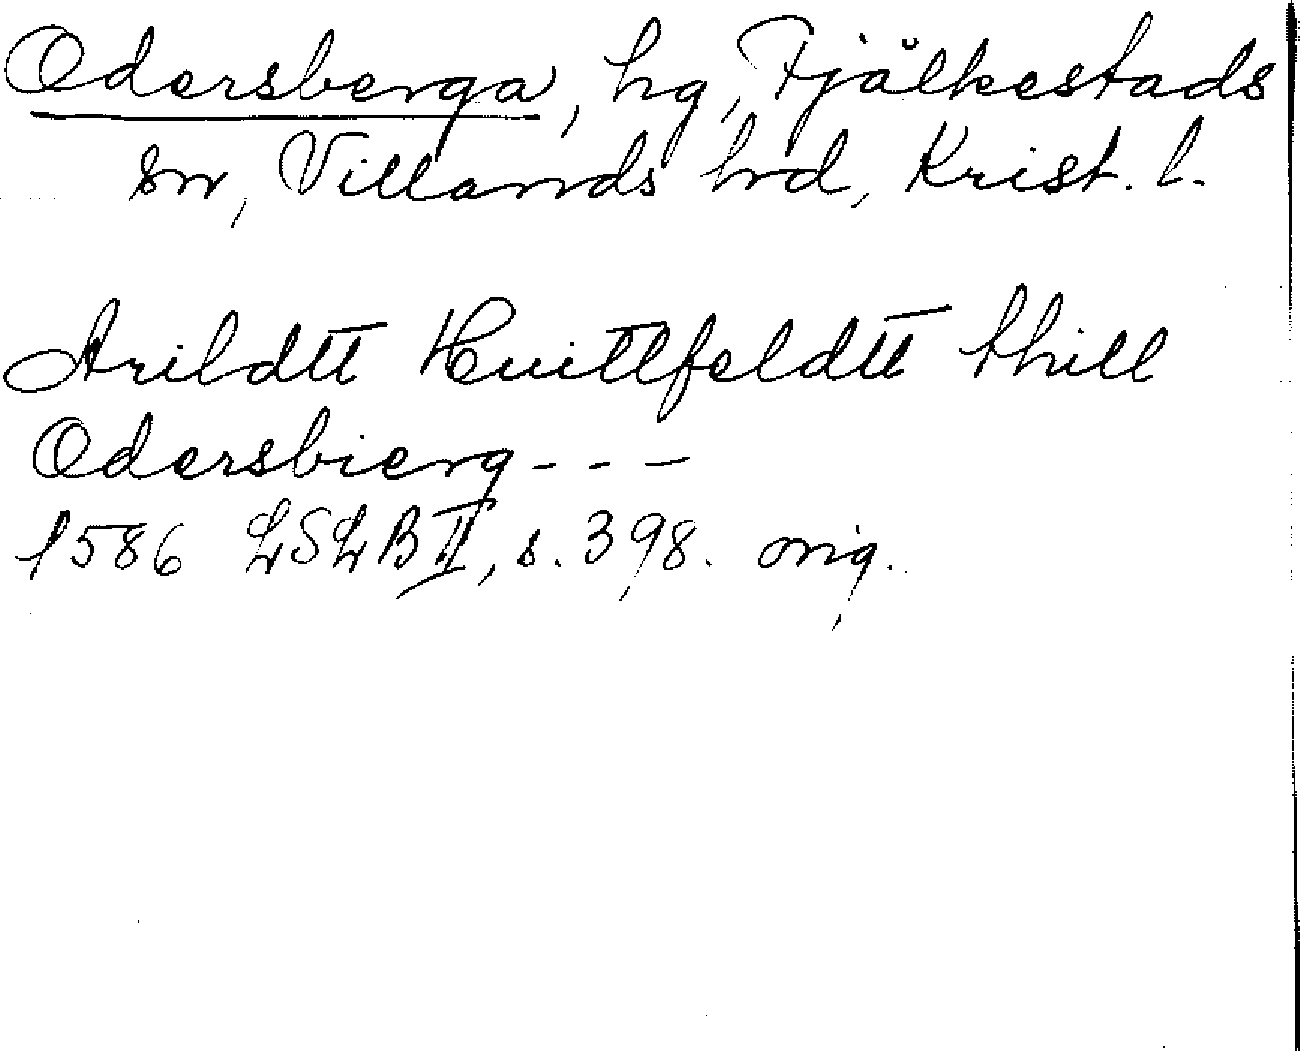 Odersberga, hg, Fjälkestads
sn, Villands hrd, Krist. l.
Arildtt Huittfeldtt thill
Odersbierg - - -
1586 LSLB II, s. 398. orig.